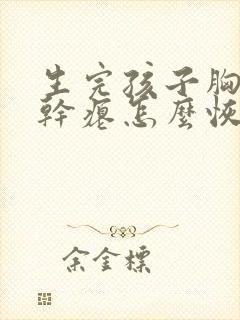 生完孩子胸
幹瘪怎麼恢
余金標